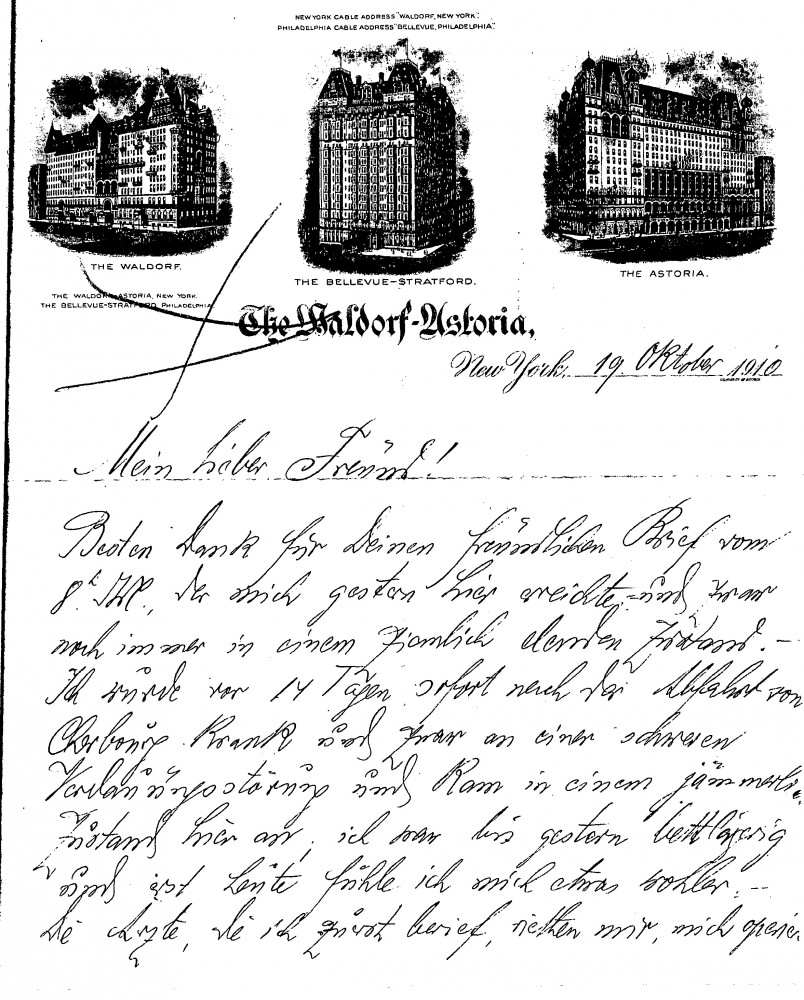 NEW YORK CABLE ADDRESS "WALDORF, NEW YORK".
PHILADELPHIA CABLE ADDRESS "BELLEVUE, PHILADELPHIA".
THE WALDORF.
THE BELLEVUE-STRATFORD.
THE ASTORIA.
THE WALDORF-ASTORIA, NEW YORK.
THE BELLEVUE-STRATFORD, PHILADELPHIA
The Waldorf-Astoria,
New York. 19 Oktober 1910
Mein lieber Freund!
Besten Dank für Deinen freundlichen Brief vom
8t, der mich gestern hier erreichte, und zwar
noch immer in einem ziemlich elenden Zustand. –
Ich wurde vor 14 Tagen sofort nach der Abfahrt von
Cherbourg krank und zwar an einer schweren
Verdauungsstörung und kam in einem jämmerli.
Zustand hier an, ich war bis gestern bettlägerig
und erst heute fühle ich mich etwas wohler. –
Die Ärzte, die ich zuerst berief, riethen mir, mich operie.